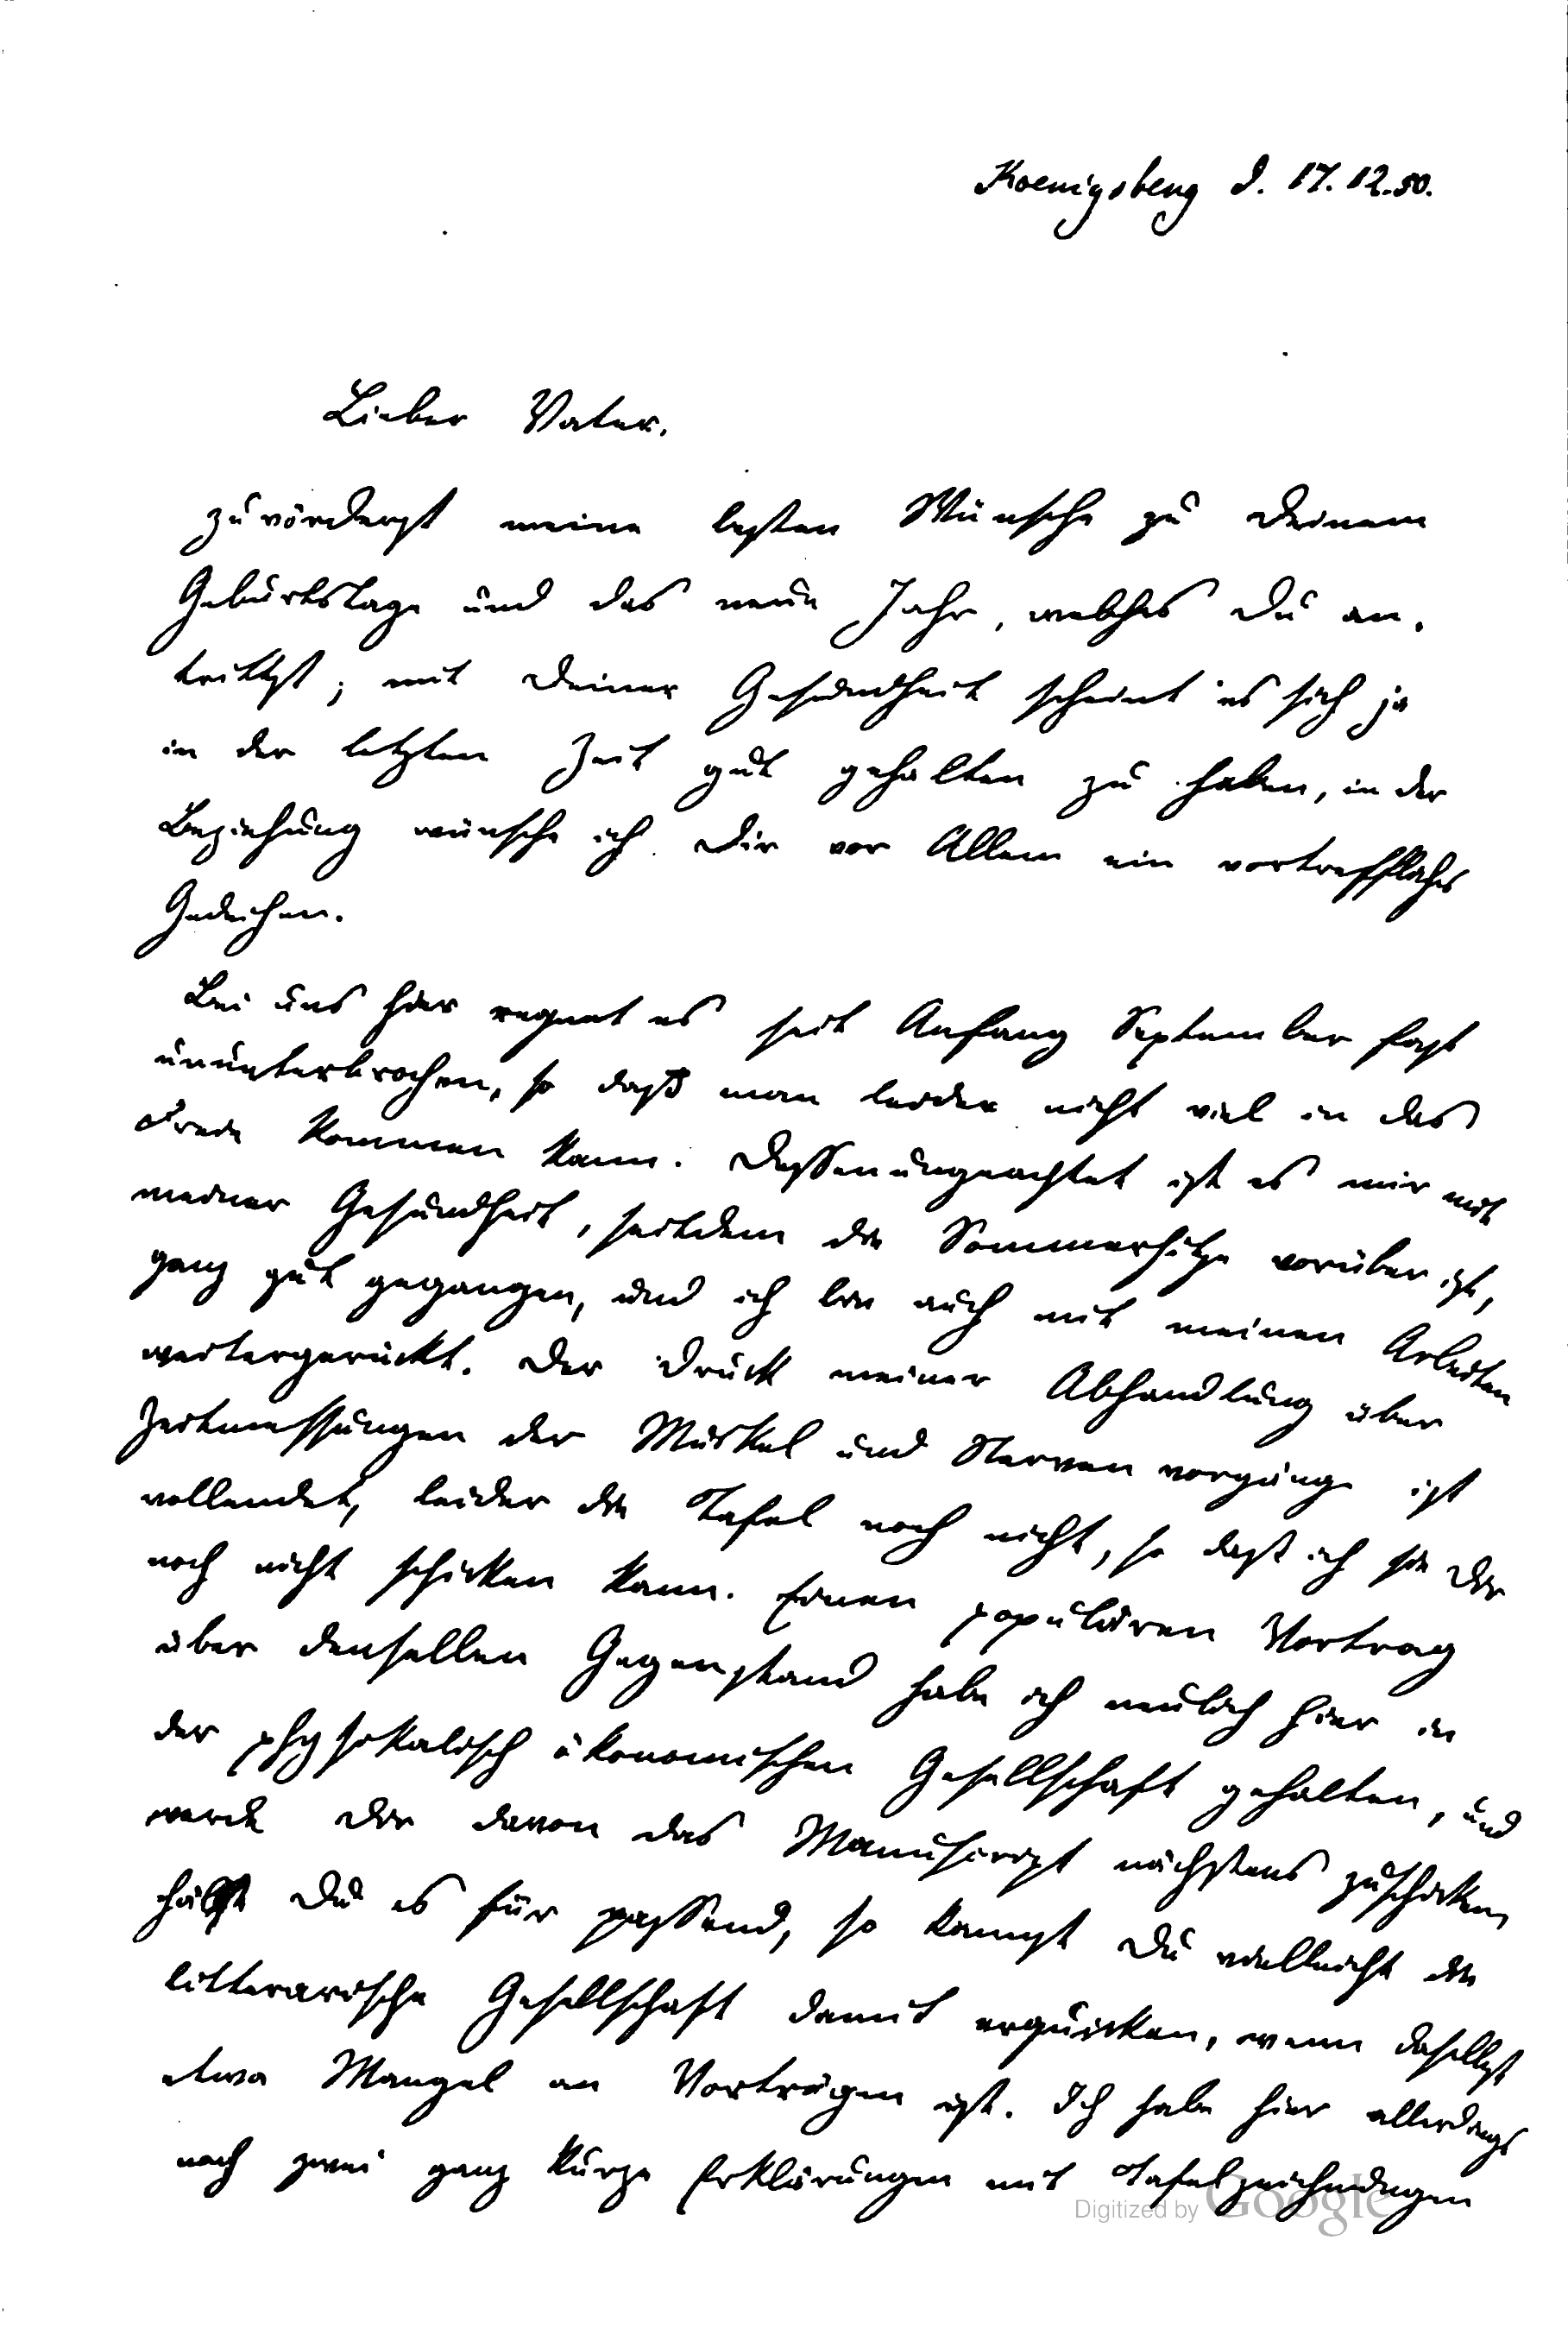 Koenigsberg d. 17.12.50.
Lieber Vater.
zuvörderst meine besten Wünsche zu Deinem
Geburtstage und das neue Jahr, welches Du an-
trittst; mit Deiner Gesundheit scheint es sich ja
in der letzten Zeit gut gehalten zu haben, in der
Beziehung wünsche ich Dir vor Allem ein vortreffliches
Gedeihen.
Bei uns hier regnet es seit Anfang September fast
ununterbrochen, so daß man leider nicht viel in das
Freie kommen kann. Dessenungeachtet ist es mir mit
meiner Gesundheit, seitdem die Sommerhitze vorüber ist,
ganz gut gegangen, und ich bin auch mit meinen Arbeiten
weitergerückt. Der Druck meiner Abhandlung über
Zeitmessungen der Muskel und Nerven vorgänge ist
vollendet, leider die Tafel noch nicht, so daß ich sie Dir
noch nicht schicken kann. Einen populären Vortrag
über denselben Gegenstand habe ich neulich hier in
der physikalisch ökonomischen Gesellschaft gehalten, und
werde Dir davon das Manuscript nächstens zuschicken,
hälst Du es für passend, so kannst Du vielleicht die
litterarische Gesellschaft damit erquicken, wenn daselbst
etwa Mangel an Vorträgen ist. Ich habe hier allerdings
noch zwei ganz kurze Erklärungen mit Tafelzeichnungen
Digitized by Google